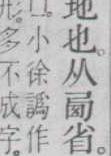 地也。从咼省。
凵。小徐譌作
形。多不成字。